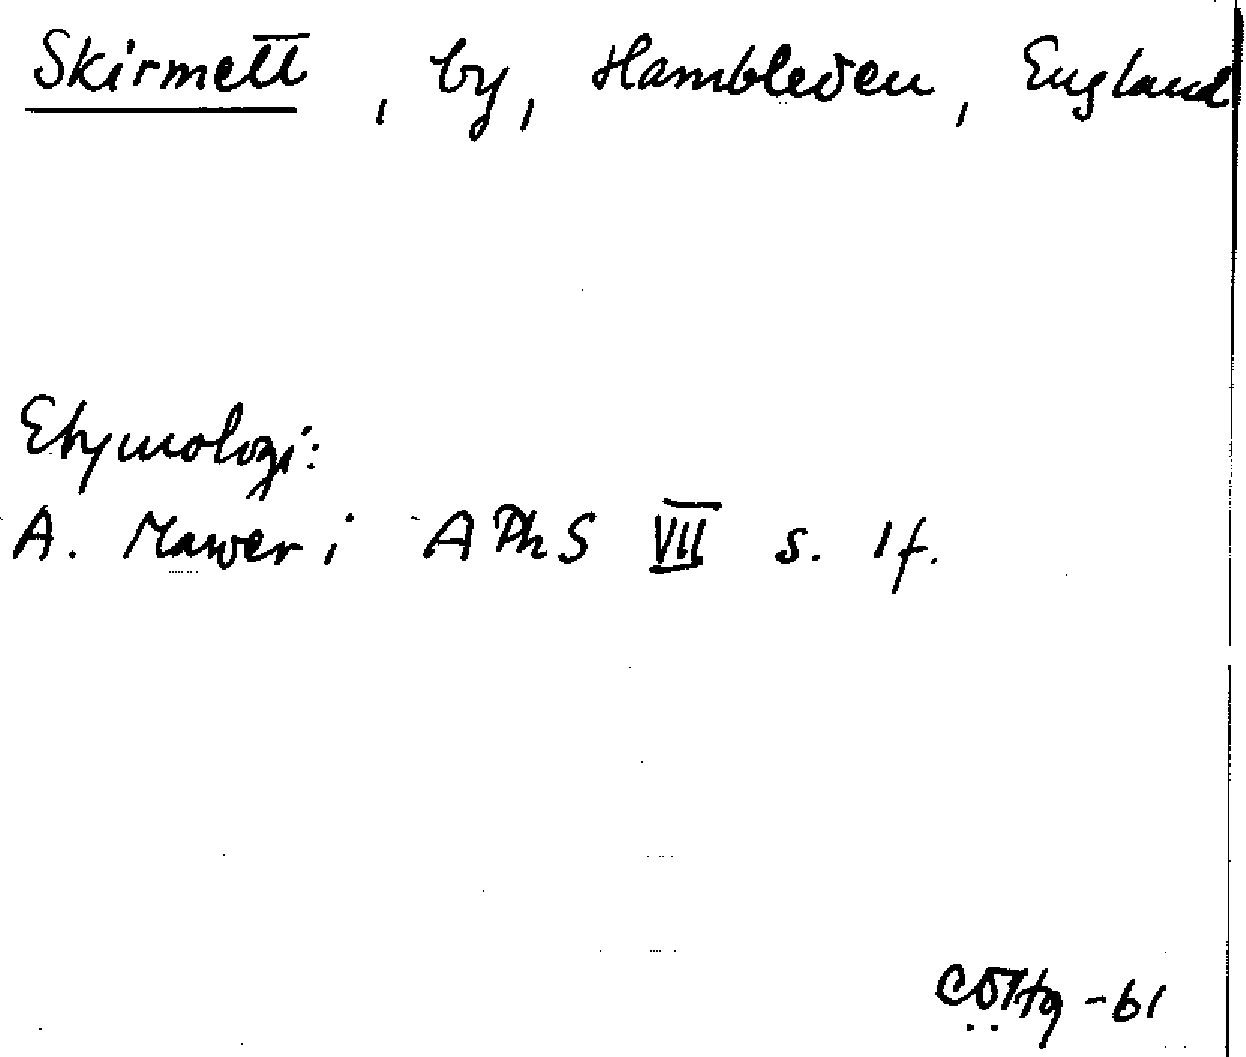 Skirmett, by, Hambleden, England
Etymologi:
A. Mawer i APhS VII s. 1f.
-61